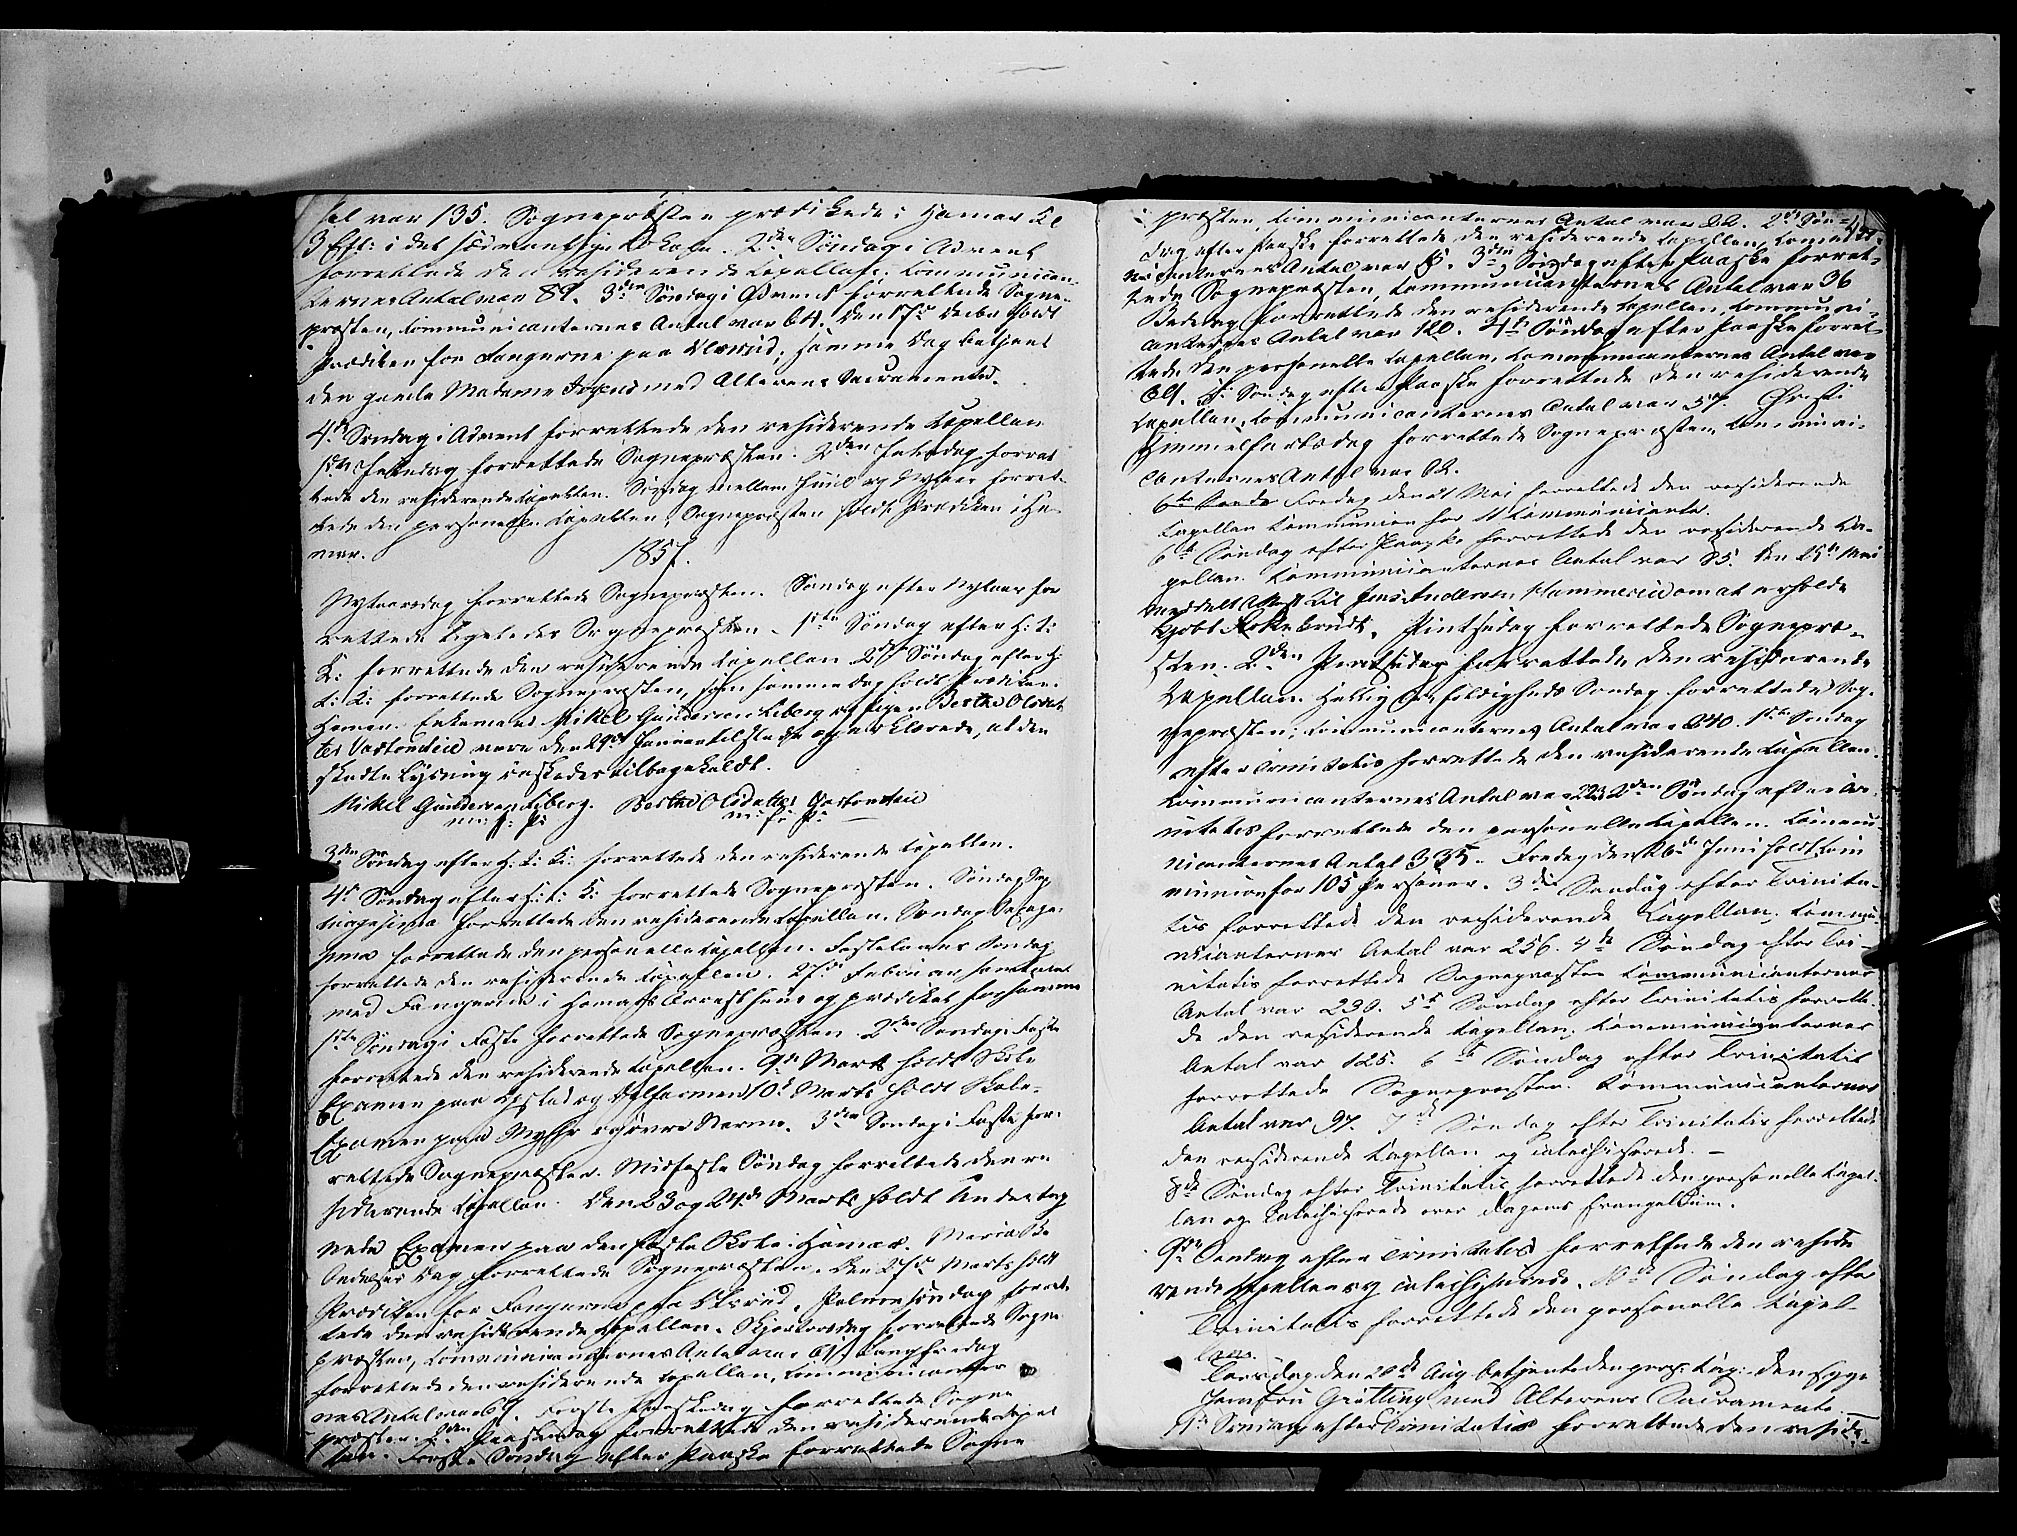 tal var 135. Sognepræsten prædikede i Hamar Kl
3 Eft: i det sædvanlige Lokale. 2den Søndag i Advent
forrettede den residerende Capellan. Communican-
ternes Antal var 89. 3die Søndag i Advent forrettede Sogne-
præsten, Communicanternes Antal var 64. Den 17de Decbr holdt
Prædiken for Fangerne paa samme Dag betjent
den gamle Madame med Alterens Sacramented.
4de Søndag i Advent forrettede den residerende Capellan
1ste Juledag forrettede Sognepræsten. 2den Juledag forret
tede den residerende Capellan. Søndag mellem Juul og Nytaar forret-
tede den personelle Capellan, Sognepræsten holdt Prædiken i Ha-
mar.
1857.
Nytaarsdag forrettede Sognepræsten. Søndag efter Nytaar for
rettede ligeledes Sognepræsten. 1ste Søndag efter H: 3:
K: forrettede den residerende Capellan 2den Søndag efter H:
3: K: forrettede Sognepræsten, som samme Dag holdt Prædiken i
Hamar. Enkemand Mikel Gundersen Liberg og Pigen Berthe Olsdat-
ter vare den 29de Januar tilstede og erklærede, at den
skedte Lysning ønskedes tilbagekaldt.
Mikel Gundersen Liberg. Berthe Olsdatter
m: f: P: m: f: P:
3die Søndag efter H: 3: K: forrettede den residerende Capellan.
4de Søndag efter H: 3: K: forrettede Sognepræsten. Søndag Sep
tuagesima forrettede den residerende Capellan. Søndag Sexage-
sima forrettede den personelle Capellan. Fastelavns Søndag
forrettede den residerende Capellan. 27de Februar
med Fangerne i Hamars Arresthuus og prædiket for samme
1ste Søndag i Faste forrettede Sognepræsten 2den Søndag i Faste
forrettede den residerende Capellan. 9de Marts holdt Skole
Examen paa og 10de Marts holdt Skole-
Examen paa og 3die Søndag i Faste for-
rettede Sognepræsten. Midfaste Søndag forrettede den re
siderende Capellan. Den 23 og 24de Marts holdt Underteg
nede Examen paa den faste Skole i Hamar. Mariæ Be
budelses Dag forrettede Sognepræsten. Den 27de Marts holdt
Prædiken for Fangerne paa Palmesøndag forret-
tede den residerende Capellan. Skjærtorsdag forrettede Sogne
præsten, Communicanternes Antal var 61. Langfredag
forrettede den residerende Capellan, Communicanter
nes Antal var 67. Første Paaskedag forrettede Sogne
præsten. 2den Paaskedag forrettede den residerende Capel
lan. Første Søndag efter Paaske forrettede Sogne
præsten, Communicanternes Antal var 22. 2den Søn-
dag efter Paaske forrettede den residerende Capellan, Commu-
nicanternes Antal var 3die Søndag efter Paaske forret-
tede Sognepræsten, Communicanternes Antal var 36
Bededag forrettede den residerende Capellan, Communi-
canternes Antal var 120. 4de Søndag efter Paaske forret-
tede den personelle Capellan, Communicanternes Antal var
64. 5te Søndag efter Paaske forrettede den residerende
Capellan, Communicanternes Antal var 57. Christi
Himmelfartsdag forrettede Sognepræsten, Communi-
canternes Antal var 62.
6te Fredag den Mai forrettede den residerende
Capellan Communion for 11 Communicanter.
6te Søndag efter Paaske forrettede den residerende Ca-
pellan. Communicanternes Antal var 85. Den 25de Mai
meddelt Attest til Jens Andersen Hammerud om at erholde
Pintsedag forrettede Sognepræ-
sten. 2den Pintsedag forrettede den residerende
Capellan. Hellig Trefoldigheds Søndag forrettede Sog-
nepræsten; Communicanternes Antal var 240. 1ste Søndag
efter Trinitatis forrettede den residerende Capellan.
Communicanternes Antal var 223. 2den Søndag efter Tri-
nitatis forrettede den personelle Capellan. Commu-
nicanternes Antal 335. Fredag den 26de Juni holdt Com
munion for 105 Personer. 3die Søndag efter Trinita-
tis forrettede den residerende Capellan. Commu-
nicanternes Antal var 256. 4de Søndag efter Tri-
nitatis forrettede Sognepræsten Communicanternes
Antal var 230. 5te Søndag efter Trinitatis forrette-
de den residerende Capellan; Communicanternes
Antal var 125. 6te Søndag efter Trinitatis
forrettede Sognepræsten. Communicanternes
Antal var 97. 7de Søndag efter Trinitatis forrettede
den residerende Capellan og catechiserede. –
8de Søndag efter Trinitatis forrettede den personelle Capel-
lan og catechiserede over Dagens Evangelium.
9de Søndag efter Trinitatis forrettede den reside
rende Capellan og catechiserede. 10de Søndag efter
Trinitatis forrettede den personelle Capel-
lan.
Torsdag den 20de Aug. betjente den pers. Cap: den syge
Jomfru Grütting med Alterens Sacramente.
11te Søndag efter Trinitatis forrettede den reside-